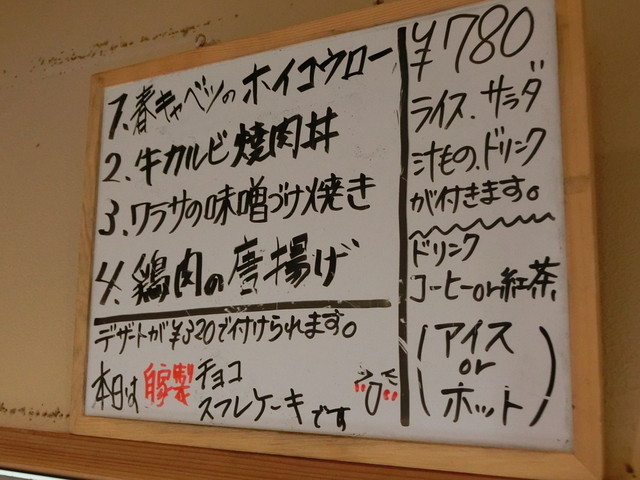 1.春キャベツのホイコウロー
2.牛カルビ焼肉丼
3.ワラサの味噌づけ焼き
4.鶏肉の唐揚げ
デザートが¥320で付けられます。
本日は自家製チョコ
スフレケーキです
¥780
ライス、サラダ
汁もの、ドリンク
が付きます。
ドリンク
コーヒーor紅茶
(アイス
or
ホット)